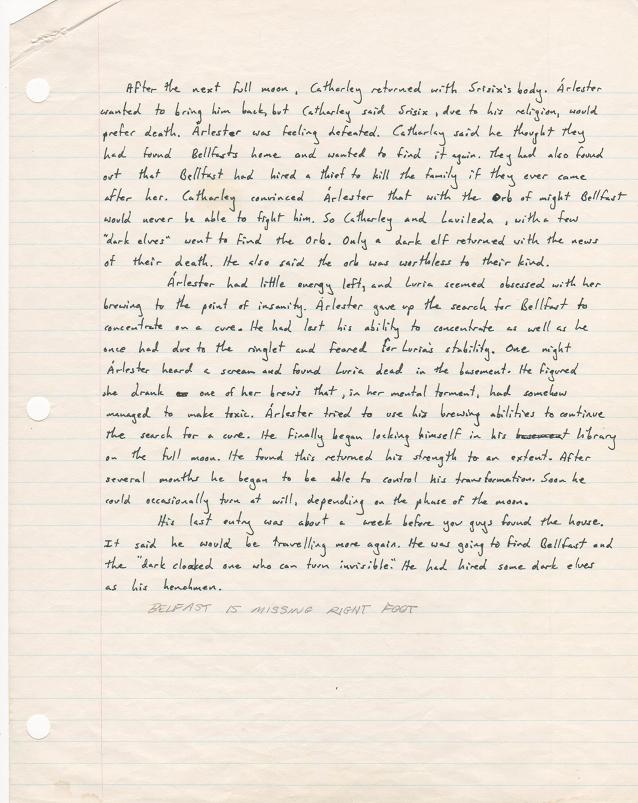 After the next full moon, Catharley returned with Srisix's body. Árlester
wanted to bring him back, but Catharley said Srisix, due to his religion, would
prefer death. Árlester was feeling defeated. Catharley said he thought they
had found Bellfasts home and wanted to find it again. They had also found
out that Bellfast had hired a thief to kill the family if they ever came
after her. Catharley convinced Árlester that with the Orb of might Bellfast
would never be able to fight him. So Catharley and Lavileda, with a few
"dark elves" went to find the Orb. Only a dark elf returned with the news
of their death. He also said the orb was worthless to their kind.
Árlester had little energy left, and Luria seemed obsessed with her
brewing to the point of insanity. Árlester gave up the search for Bellfast to
concentrate on a cure. He had lost his ability to concentrate as well as he
once had due to the ringlet and feared for Luria's stability. One night
Árlester heard a scream and found Luria dead in the basement. He figured
she drank one of her brews that, in her mental torment, had somehow
managed to make toxic. Árlester tried to use his brewing abilities to continue
the search for a cure. He finally began locking himself in his basement library
on the full moon. He found this returned his strength to an extent. After
several months he began to be able to control his transformation. Soon he
could occasionally turn at will, depending on the phase of the moon.
His last entry was about a week before you guys found the house.
It said he would be travelling more again. He was going to find Bellfast and
the "dark cloaked one who can turn invisible." He had hired some dark elves
as his henchmen.
BELFAST IS MISSING RIGHT FOOT